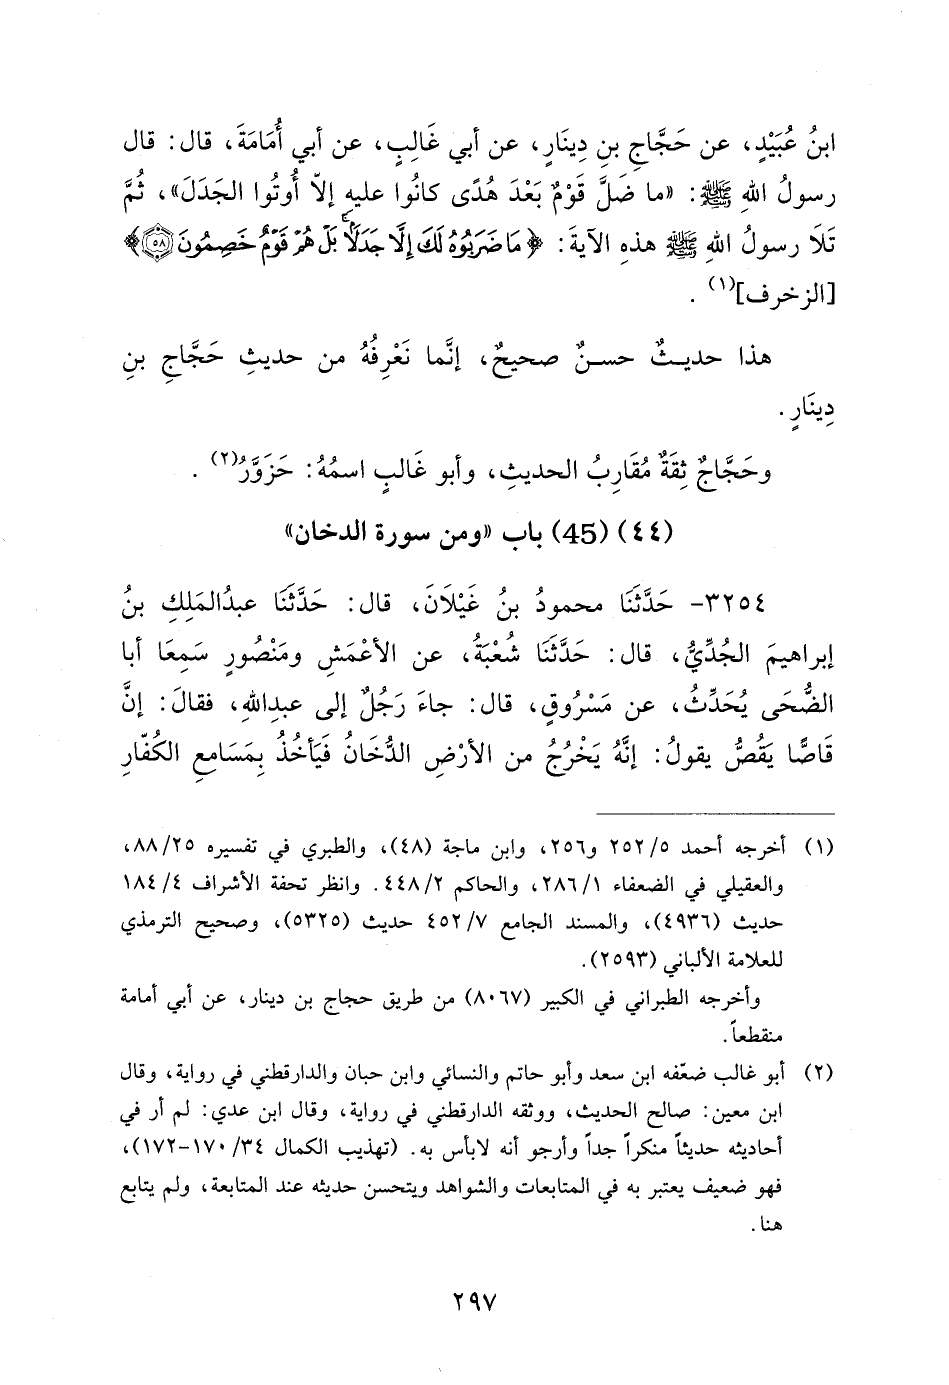 ابنُ عُبَيْدٍ، عن حَجَّاجِ بنِ دِينَارٍ، عن أبي غَالِبٍ، عن أبي أُمَامَةَ، قال: قال
رسولُ اللهِ ﷺ: «ما ضَلَّ قَوْمٌ بَعْدَ هُدًى كانُوا عليهِ إلاّ أُوتُوا الجَدَلَ»، ثُمَّ
تَلَا رسولُ اللهِ ﷺ هذهِ الآيةَ: ﴿مَا ضَرَبُوهُ لَكَ إِلَّا جَدَلًاۚ بَلْ هُمْ قَوْمٌ خَصِمُونَ ٥٨﴾
[الزخرف](١) .
هذا حديثٌ حسنٌ صحيحٌ، إنَّما نَعْرِفُهُ من حديثِ حَجَّاجِ بنِ
دِينَارٍ .
وحَجَّاجٌ ثِقَةٌ مُقَارِبُ الحديثِ، وأبو غَالبٍ اسمُهُ: حَزَوَّرُ(٢) .
(٤٤) (45) باب «ومن سورة الدخان»
٣٢٥٤- حَدَّثَنَا محمودُ بنُ غَيْلَانَ، قال: حَدَّثَنَا عبدُالمَلِكِ بنُ
إبراهيمَ الجُدِّيُّ، قال: حَدَّثَنَا شُعْبَةُ، عن الأعْمَشِ ومَنْصُورٍ سَمِعَا أبا
الضُّحَى يُحَدِّثُ، عن مَسْرُوقٍ، قال: جاءَ رَجُلٌ إلى عبدِاللهِ، فقالَ: إنَّ
قَاصًّا يَقُصُّ يقولُ: إنَّهُ يَخْرُجُ من الأرْضِ الدُّخَانُ فَيَأخُذُ بِمَسَامعِ الكُفّارِ
(١) أخرجه أحمد ٢٥٢/٥ و٢٥٦، وابن ماجة (٤٨)، والطبري في تفسيره ٨٨/٢٥،
والعقيلي في الضعفاء ٢٨٦/١، والحاكم ٤٤٨/٢. وانظر تحفة الأشراف ١٨٤/٤
حديث (٤٩٣٦)، والمسند الجامع ٤٥٢/٧ حديث (٥٣٢٥)، وصحيح الترمذي
للعلامة الألباني (٢٥٩٣).
وأخرجه الطبراني في الكبير (٨٠٦٧) من طريق حجاج بن دينار، عن أبي أمامة
منقطعاً.
(٢) أبو غالب ضعّفه ابن سعد وأبو حاتم والنسائي وابن حبان والدارقطني في رواية، وقال
ابن معين: صالح الحديث، ووثقه الدارقطني في رواية، وقال ابن عدي: لم أر في
أحاديثه حديثاً منكراً جداً وأرجو أنه لابأس به. (تهذيب الكمال ٣٤/ ١٧٠-١٧٢)،
فهو ضعيف يعتبر به في المتابعات والشواهد ويتحسن حديثه عند المتابعة، ولم يتابع
هنا.
٢٩٧